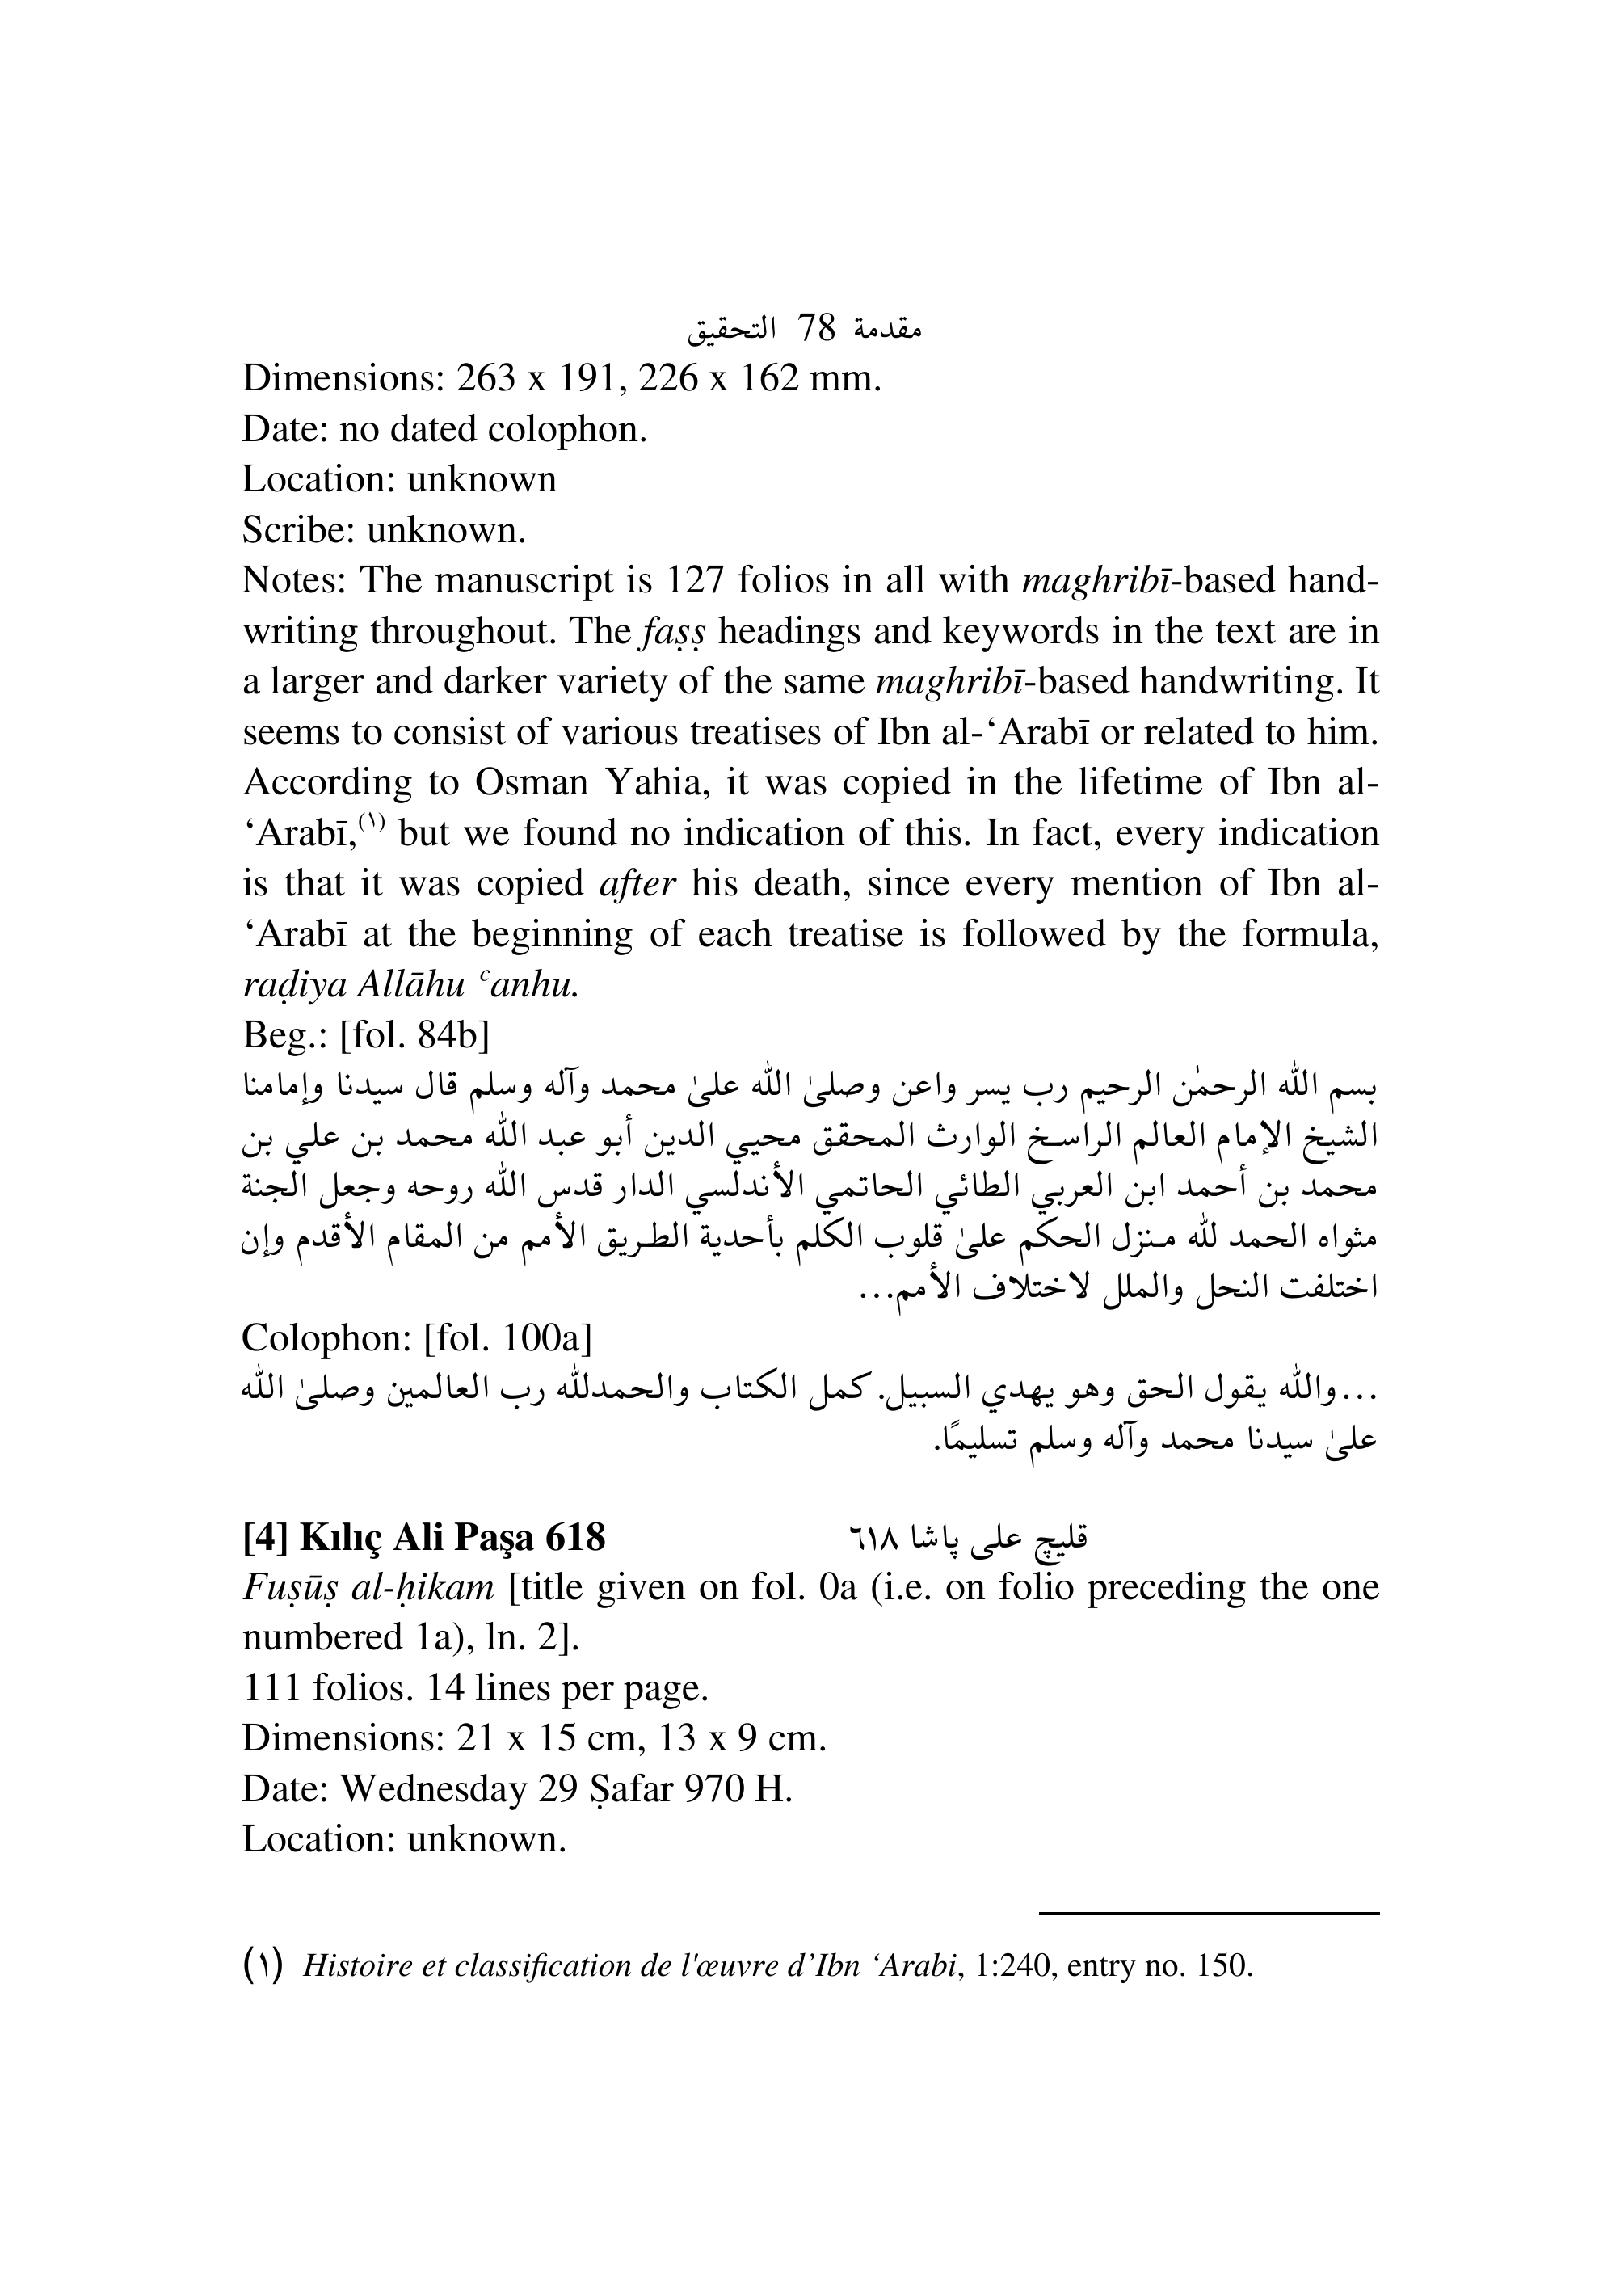 مقدمة 78 التحقيق
Dimensions: 263 x 191, 226 x 162 mm.
Date: no dated colophon.
Location: unknown
Scribe: unknown.
Notes: The manuscript is 127 folios in all with maghribī-based hand-
writing throughout. The faṣṣ headings and keywords in the text are in
a larger and darker variety of the same maghribī-based handwriting. It
seems to consist of various treatises of Ibn al-ʻArabī or related to him.
According to Osman Yahia, it was copied in the lifetime of Ibn al-
ʻArabī,(١) but we found no indication of this. In fact, every indication
is that it was copied after his death, since every mention of Ibn al-
ʻArabī at the beginning of each treatise is followed by the formula,
raḍiya Allāhu ᶜanhu.
Beg.: [fol. 84b]
بسم الله الرحمٰن الرحيم رب يسر واعن وصلىٰ الله علىٰ محمد وآله وسلم قال سيدنا وإمامنا
الشيخ الإمام العالم الراسخ الوارث المحقق محيي الدين أبو عبد الله محمد بن علي بن
محمد بن أحمد ابن العربي الطائي الحاتمي الأندلسي الدار قدس الله روحه وجعل الجنة
مثواه الحمد لله منزل الحكم علىٰ قلوب الكلم بأحدية الطريق الأمم من المقام الأقدم وإن
اختلفت النحل والملل لاختلاف الأمم...
Colophon: [fol. 100a]
...والله يقول الحق وهو يهدي السبيل. كمل الكتاب والحمدلله رب العالمين وصلىٰ الله
علىٰ سيدنا محمد وآله وسلم تسليمًا.
[4] Kılıç Ali Paşa 618 قليچ على پاشا ٦١٨
Fuṣūṣ al-ḥikam [title given on fol. 0a (i.e. on folio preceding the one
numbered 1a), ln. 2].
111 folios. 14 lines per page.
Dimensions: 21 x 15 cm, 13 x 9 cm.
Date: Wednesday 29 Ṣafar 970 H.
Location: unknown.
(١) Histoire et classification de l'œuvre d’Ibn ʻArabi, 1:240, entry no. 150.